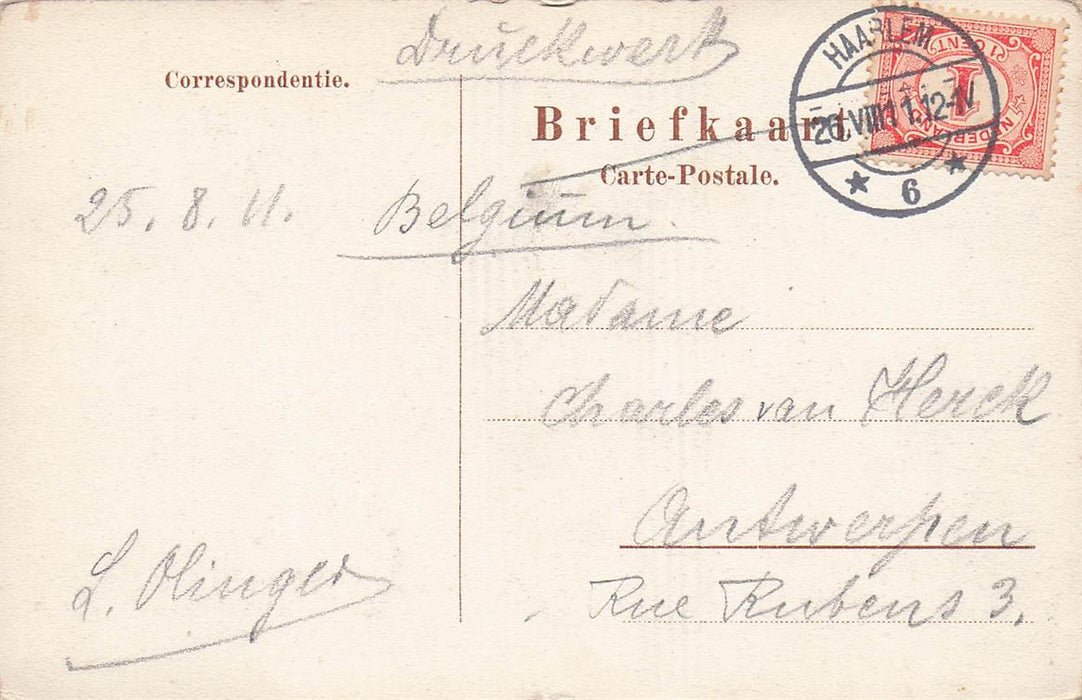 Druckwerk
Correspondentie.
Briefkaart
Carte-Postale.
HAARLEM
26.VIII11.12-1V
* 6 *
1 CENT
1
NEDERLAND
25. 8. 11.
Belgium.
Madame
Charles van Herck
Antwerpen
Rue Rubens 3.
L. Olinger